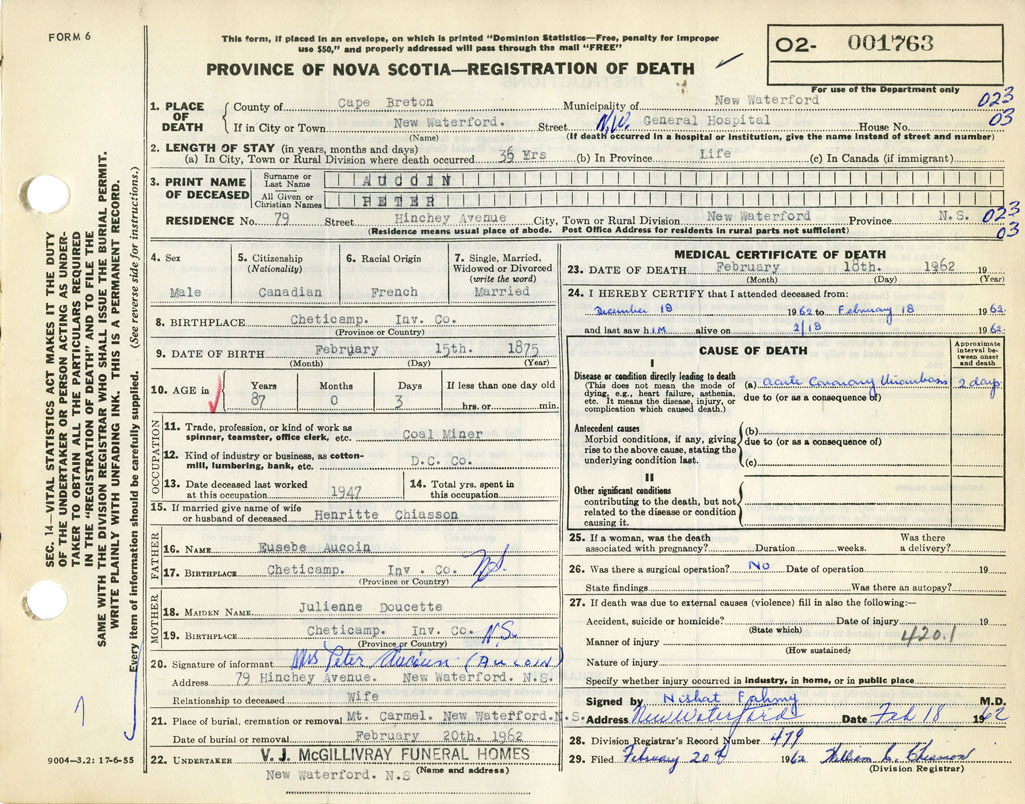 FORM 6
This form, if placed in an envelope, on which is printed "Dominion Statistics—Free, penalty for improper
use $50," and properly addressed will pass through the mail "FREE"
PROVINCE OF NOVA SCOTIA—REGISTRATION OF DEATH
02- 001763
For use of the Department only
SEC. 14—VITAL STATISTICS ACT MAKES IT THE DUTY
OF THE UNDERTAKER OR PERSON ACTING AS UNDER-
TAKER TO OBTAIN ALL THE PARTICULARS REQUIRED
IN THE "REGISTRATION OF DEATH" AND TO FILE THE
SAME WITH THE DIVISION REGISTRAR WHO SHALL ISSUE THE BURIAL PERMIT.
WRITE PLAINLY WITH UNFADING INK. THIS IS A PERMANENT RECORD.
Every item of information should be carefully supplied. (See reverse side for instructions.)
1. PLACE OF DEATH
County of Cape Breton Municipality of New Waterford 023
If in City or Town New Waterford. Street N.W. General Hospital House No. 03
(Name) (If death occurred in a hospital or institution, give the name instead of street and number)
2. LENGTH OF STAY (in years, months and days)
(a) In City, Town or Rural Division where death occurred 36 Yrs (b) In Province Life (c) In Canada (if immigrant)
3. PRINT NAME OF DECEASED
Surname or Last Name AUCOIN
All Given or Christian Names PETER
RESIDENCE No. 79 Street Hinchey Avenue City, Town or Rural Division New Waterford Province N.S. 023
(Residence means usual place of abode. Post Office Address for residents in rural parts not sufficient) 03
4. Sex
Male
5. Citizenship
(Nationality)
Canadian
6. Racial Origin
French
7. Single, Married,
Widowed or Divorced
(write the word)
Married
8. BIRTHPLACE Cheticamp. Inv. Co.
(Province or Country)
9. DATE OF BIRTH February 15th. 1875
(Month) (Day) (Year)
10. AGE in
Years Months Days If less than one day old
87 0 3 hrs. or min.
OCCUPATION
11. Trade, profession, or kind of work as
spinner, teamster, office clerk, etc. Coal Miner
12. Kind of industry or business, as cotton-
mill, lumbering, bank, etc. D.C. Co.
13. Date deceased last worked
at this occupation 1947
14. Total yrs. spent in
this occupation
15. If married give name of wife
or husband of deceased Henritte Chiasson
FATHER
16. NAME Eusebe Aucoin
17. BIRTHPLACE Cheticamp. Inv. Co. N.S.
(Province or Country)
MOTHER
18. MAIDEN NAME Julienne Doucette
19. BIRTHPLACE Cheticamp. Inv. Co. N.S.
(Province or Country)
20. Signature of informant Mrs Peter Aucoin (Aucoin)
Address 79 Hinchey Avenue. New Waterford. N.S.
Relationship to deceased Wife
21. Place of burial, cremation or removal Mt. Carmel. New Waterford.N.S.
Date of burial or removal February 20th. 1962
22. UNDERTAKER V. J. McGILLIVRAY FUNERAL HOMES
New Waterford. N.S (Name and address)
9004—3.2: 17-6-55
MEDICAL CERTIFICATE OF DEATH
23. DATE OF DEATH February 18th. 1962 19
(Month) (Day) (Year)
24. I HEREBY CERTIFY that I attended deceased from:
December 18 1962 to February 18 1962
and last saw him alive on 2/18 1962
CAUSE OF DEATH
Approximate
interval be-
tween onset
and death
I
Disease or condition directly leading to death
(This does not mean the mode of
dying, e.g., heart failure, asthenia,
etc. It means the disease, injury, or
complication which caused death.)
(a) acute Coronary thrombosis 2 days
due to (or as a consequence of)
Antecedent causes
Morbid conditions, if any, giving
rise to the above cause, stating the
underlying condition last.
(b)
due to (or as a consequence of)
(c)
II
Other significant conditions
contributing to the death, but not
related to the disease or condition
causing it.
25. If a woman, was the death
associated with pregnancy? Duration weeks. Was there
a delivery?
26. Was there a surgical operation? No Date of operation 19
State findings Was there an autopsy?
27. If death was due to external causes (violence) fill in also the following:—
Accident, suicide or homicide? Date of injury 19
(State which)
Manner of injury 420.1
(How sustained)
Nature of injury
Specify whether injury occurred in industry, in home, or in public place
Signed by Nishat Fahmy M.D.
Address New Waterford Date Feb 18 1962
28. Division Registrar's Record Number 479
29. Filed February 20th 1962 William
(Division Registrar)